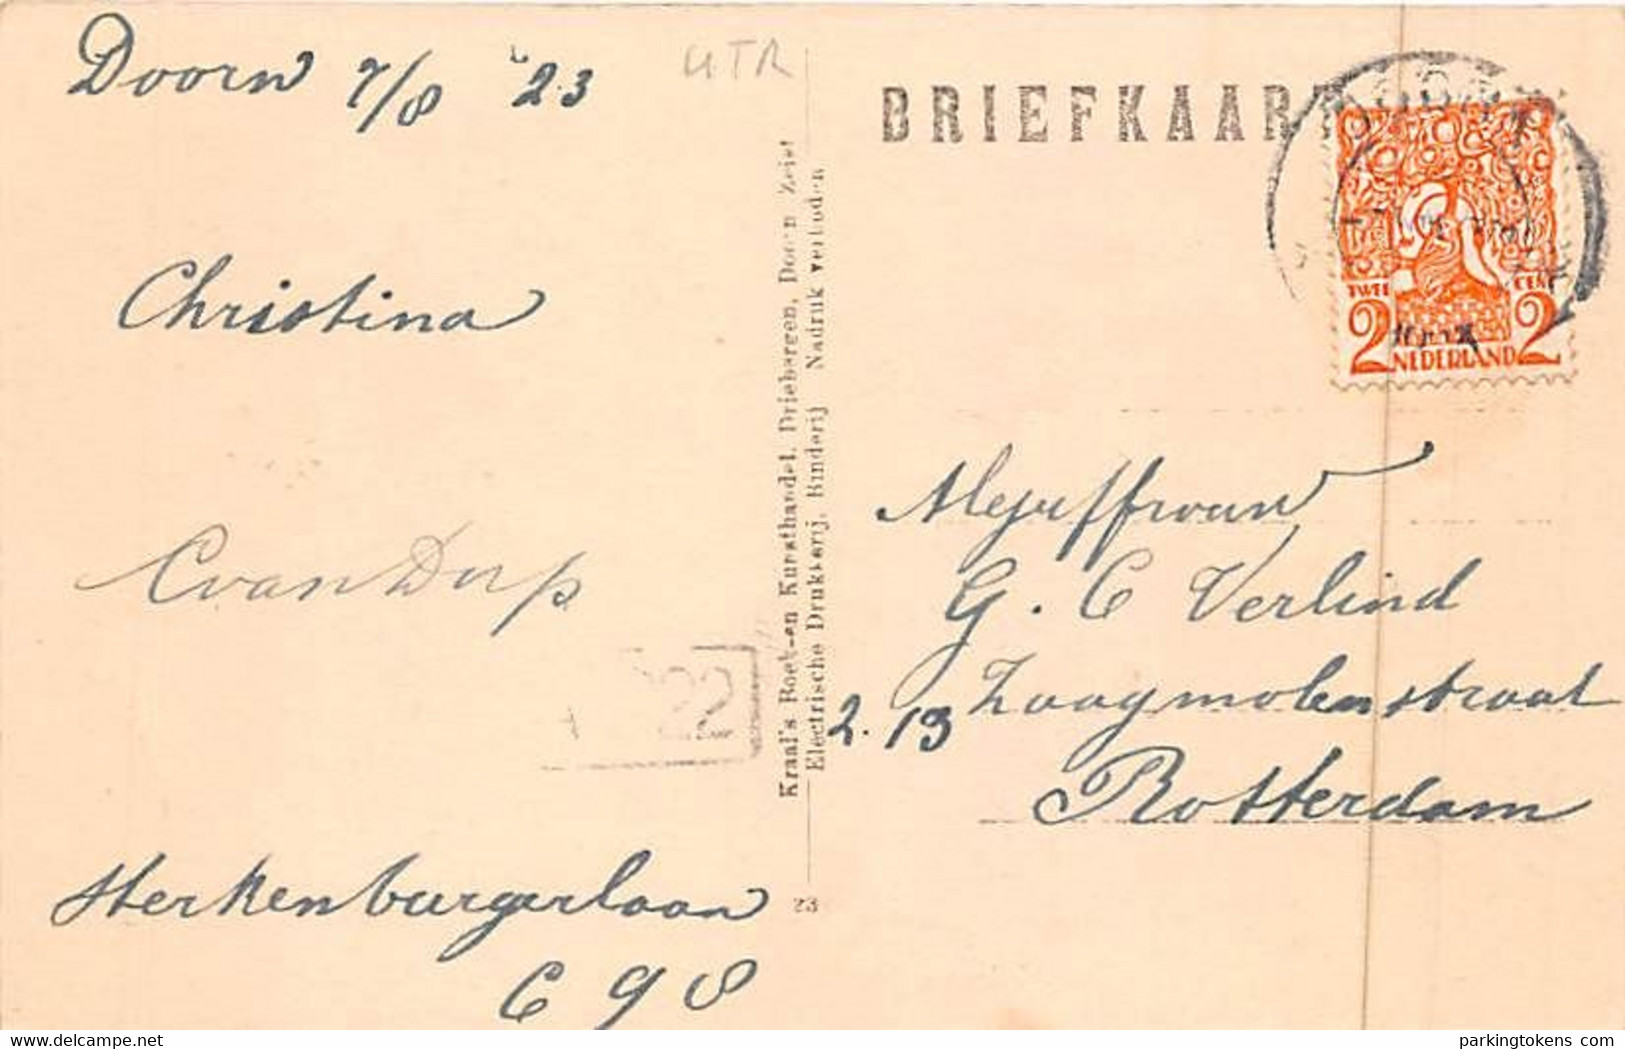 Doorn 7/8 '23
UTR
BRIEFKAART
TWEE CENT
2 2
NEDERLAND
Christina
C van Dorp
Sterkenburgerlaan
C 98
Kraal's Boek-en Kunsthandel, Driebergen, Doorn Zeist
Electrische Drukkerij, Binderij Nadruk verboden
23
Mejuffrouw
G. C Verlind
2.13 Zaagmolenstraat
Rotterdam
delcampe.net
parkingtokens com